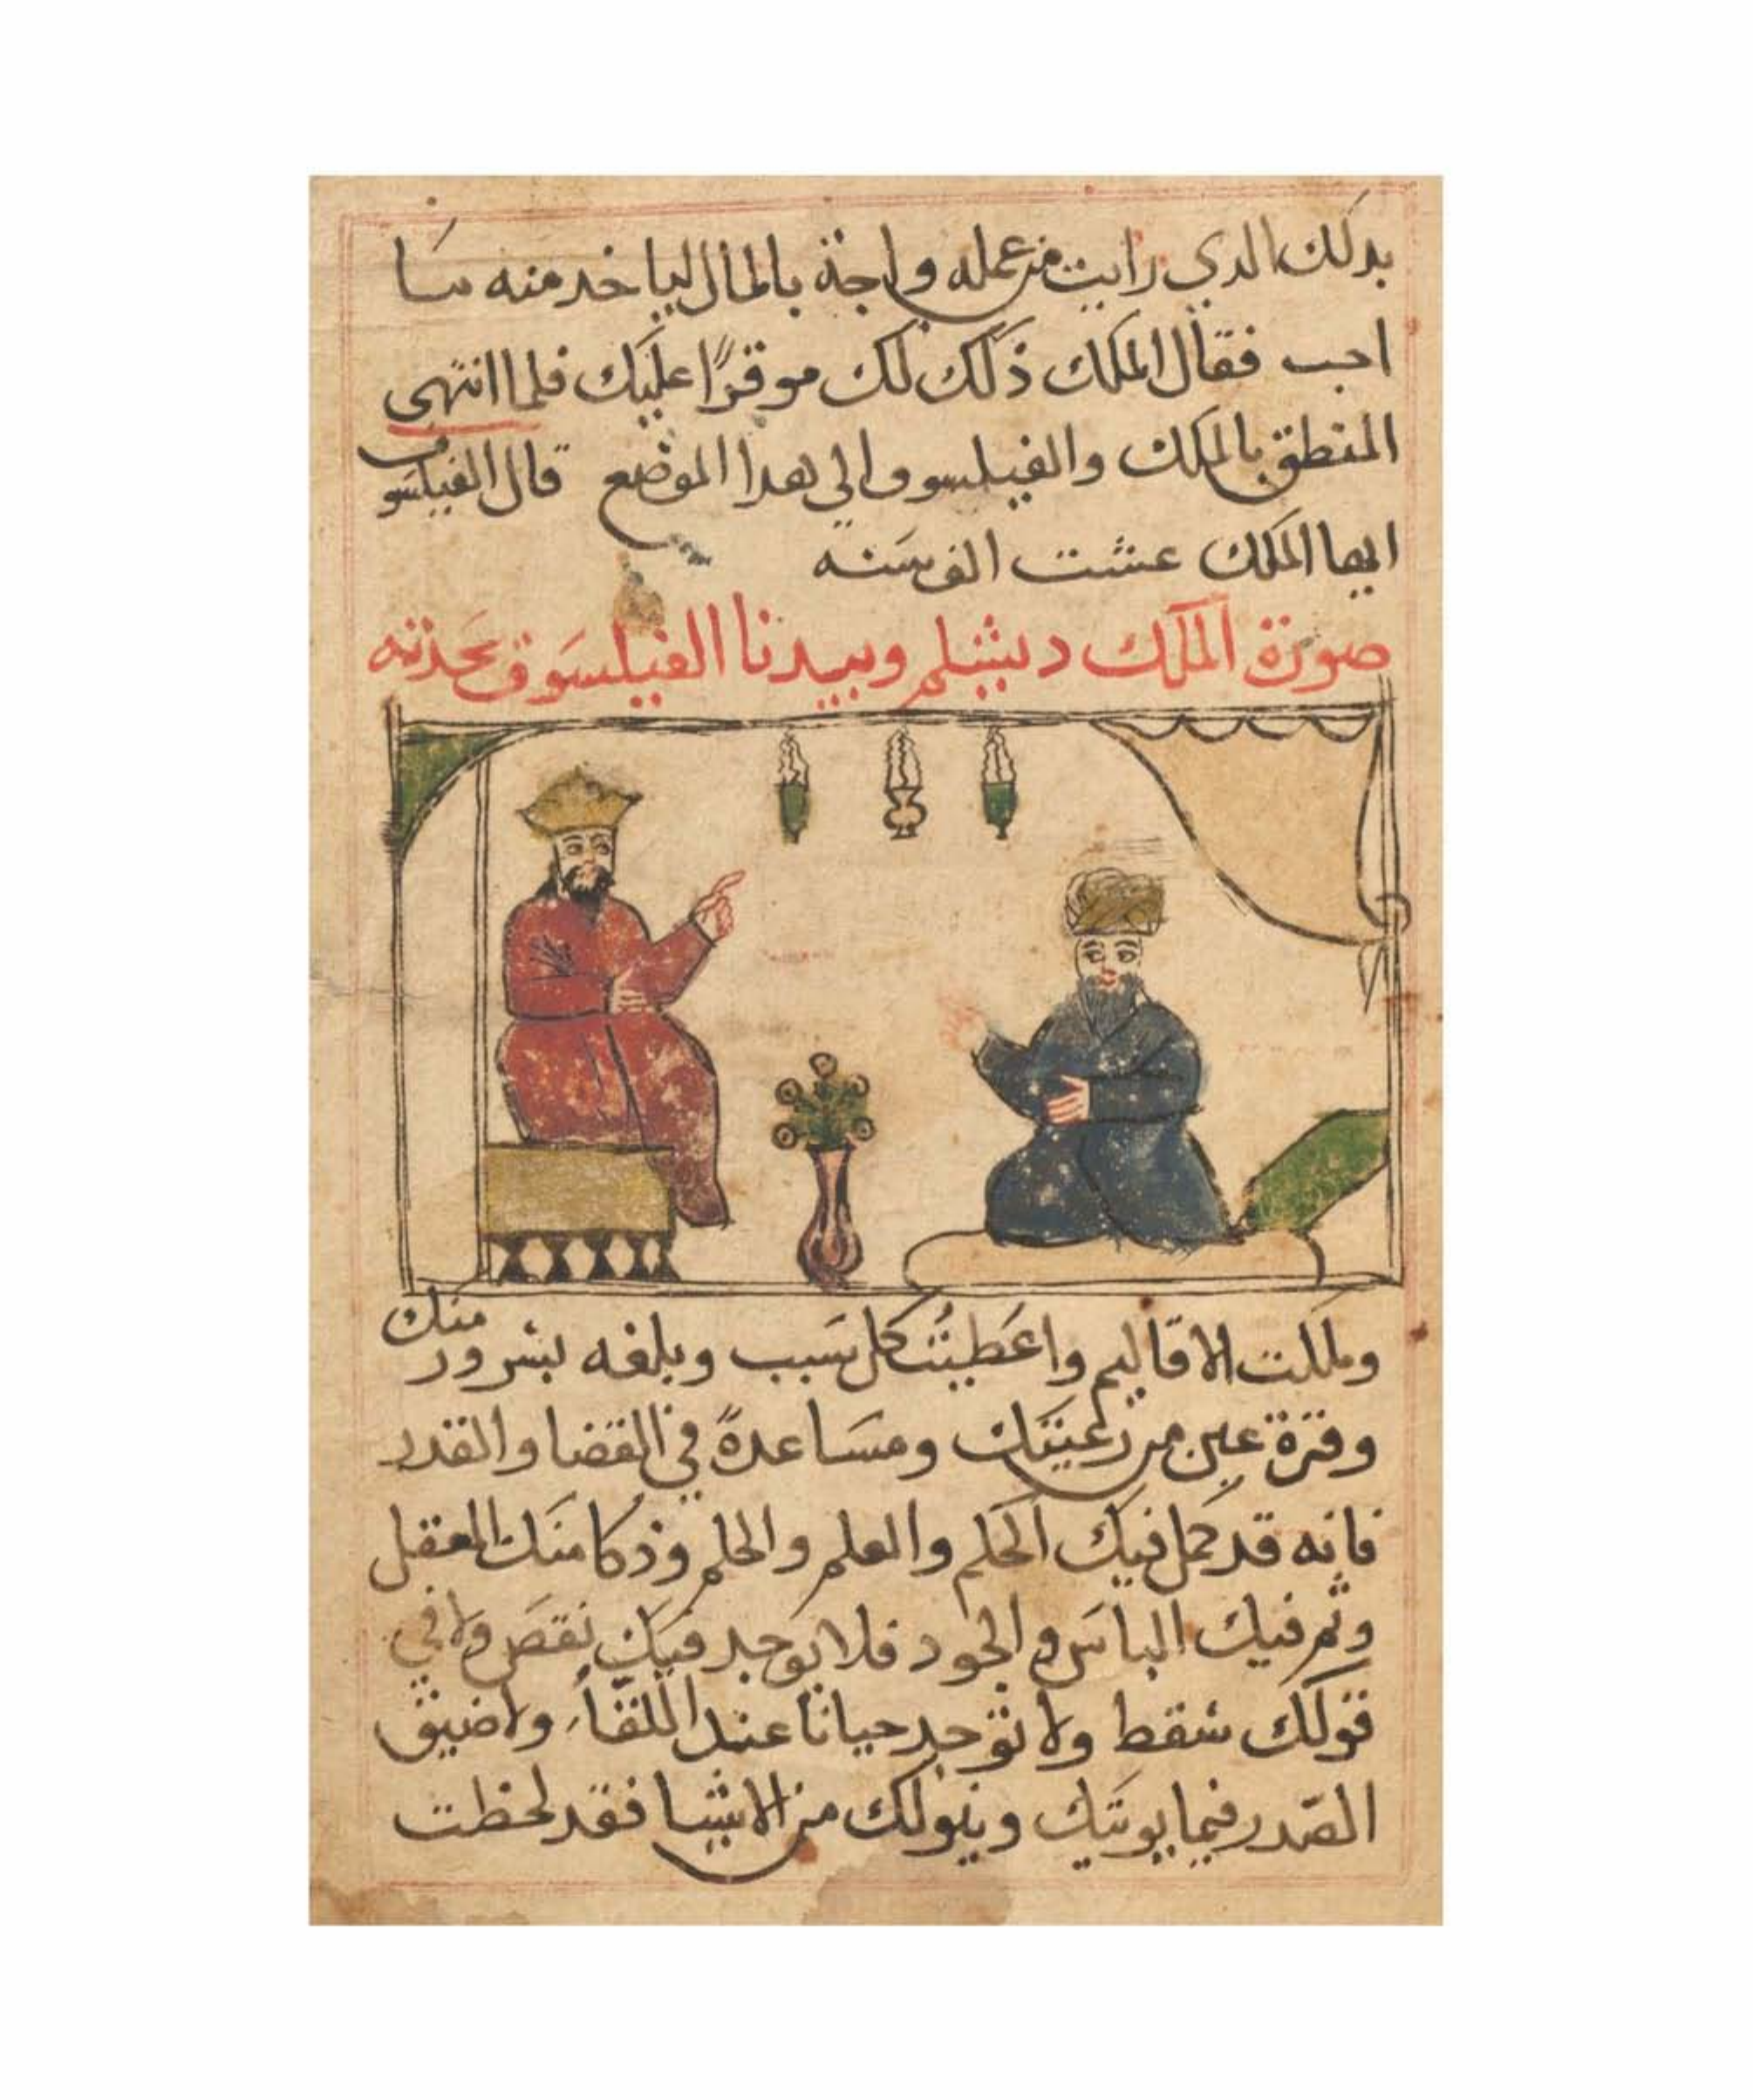 بدلك الدي رايت من عمله واجة بالمال لياخد منه سا
احب فقال الملك ذلك لك موقرًا عليك فلما انتهى
المنطق بالملك والفيلسوف الي هدا الموضع قال الفيلسوف
ايها الملك عشت الف سنه
صورة الملك دبشلم وبيدنا الفيلسوف يحدثه
وملكت الاقاليم واعطيت كل سبب وبلغه بسرور منك
وقرة عين من رعيتك ومساعدةً في القضا والقدر
فانه قد كمل فيك الحلم والعلم والحلم وذكا منك العقل
وتم فيك الباس والجود فلا يوجد فيك نقص ولا في
قولك سقط ولا توجد حيانا عند اللقاء ولا ضيق
الصّدر فيما يوتيك وينولك من الاشيا فقد لحظت